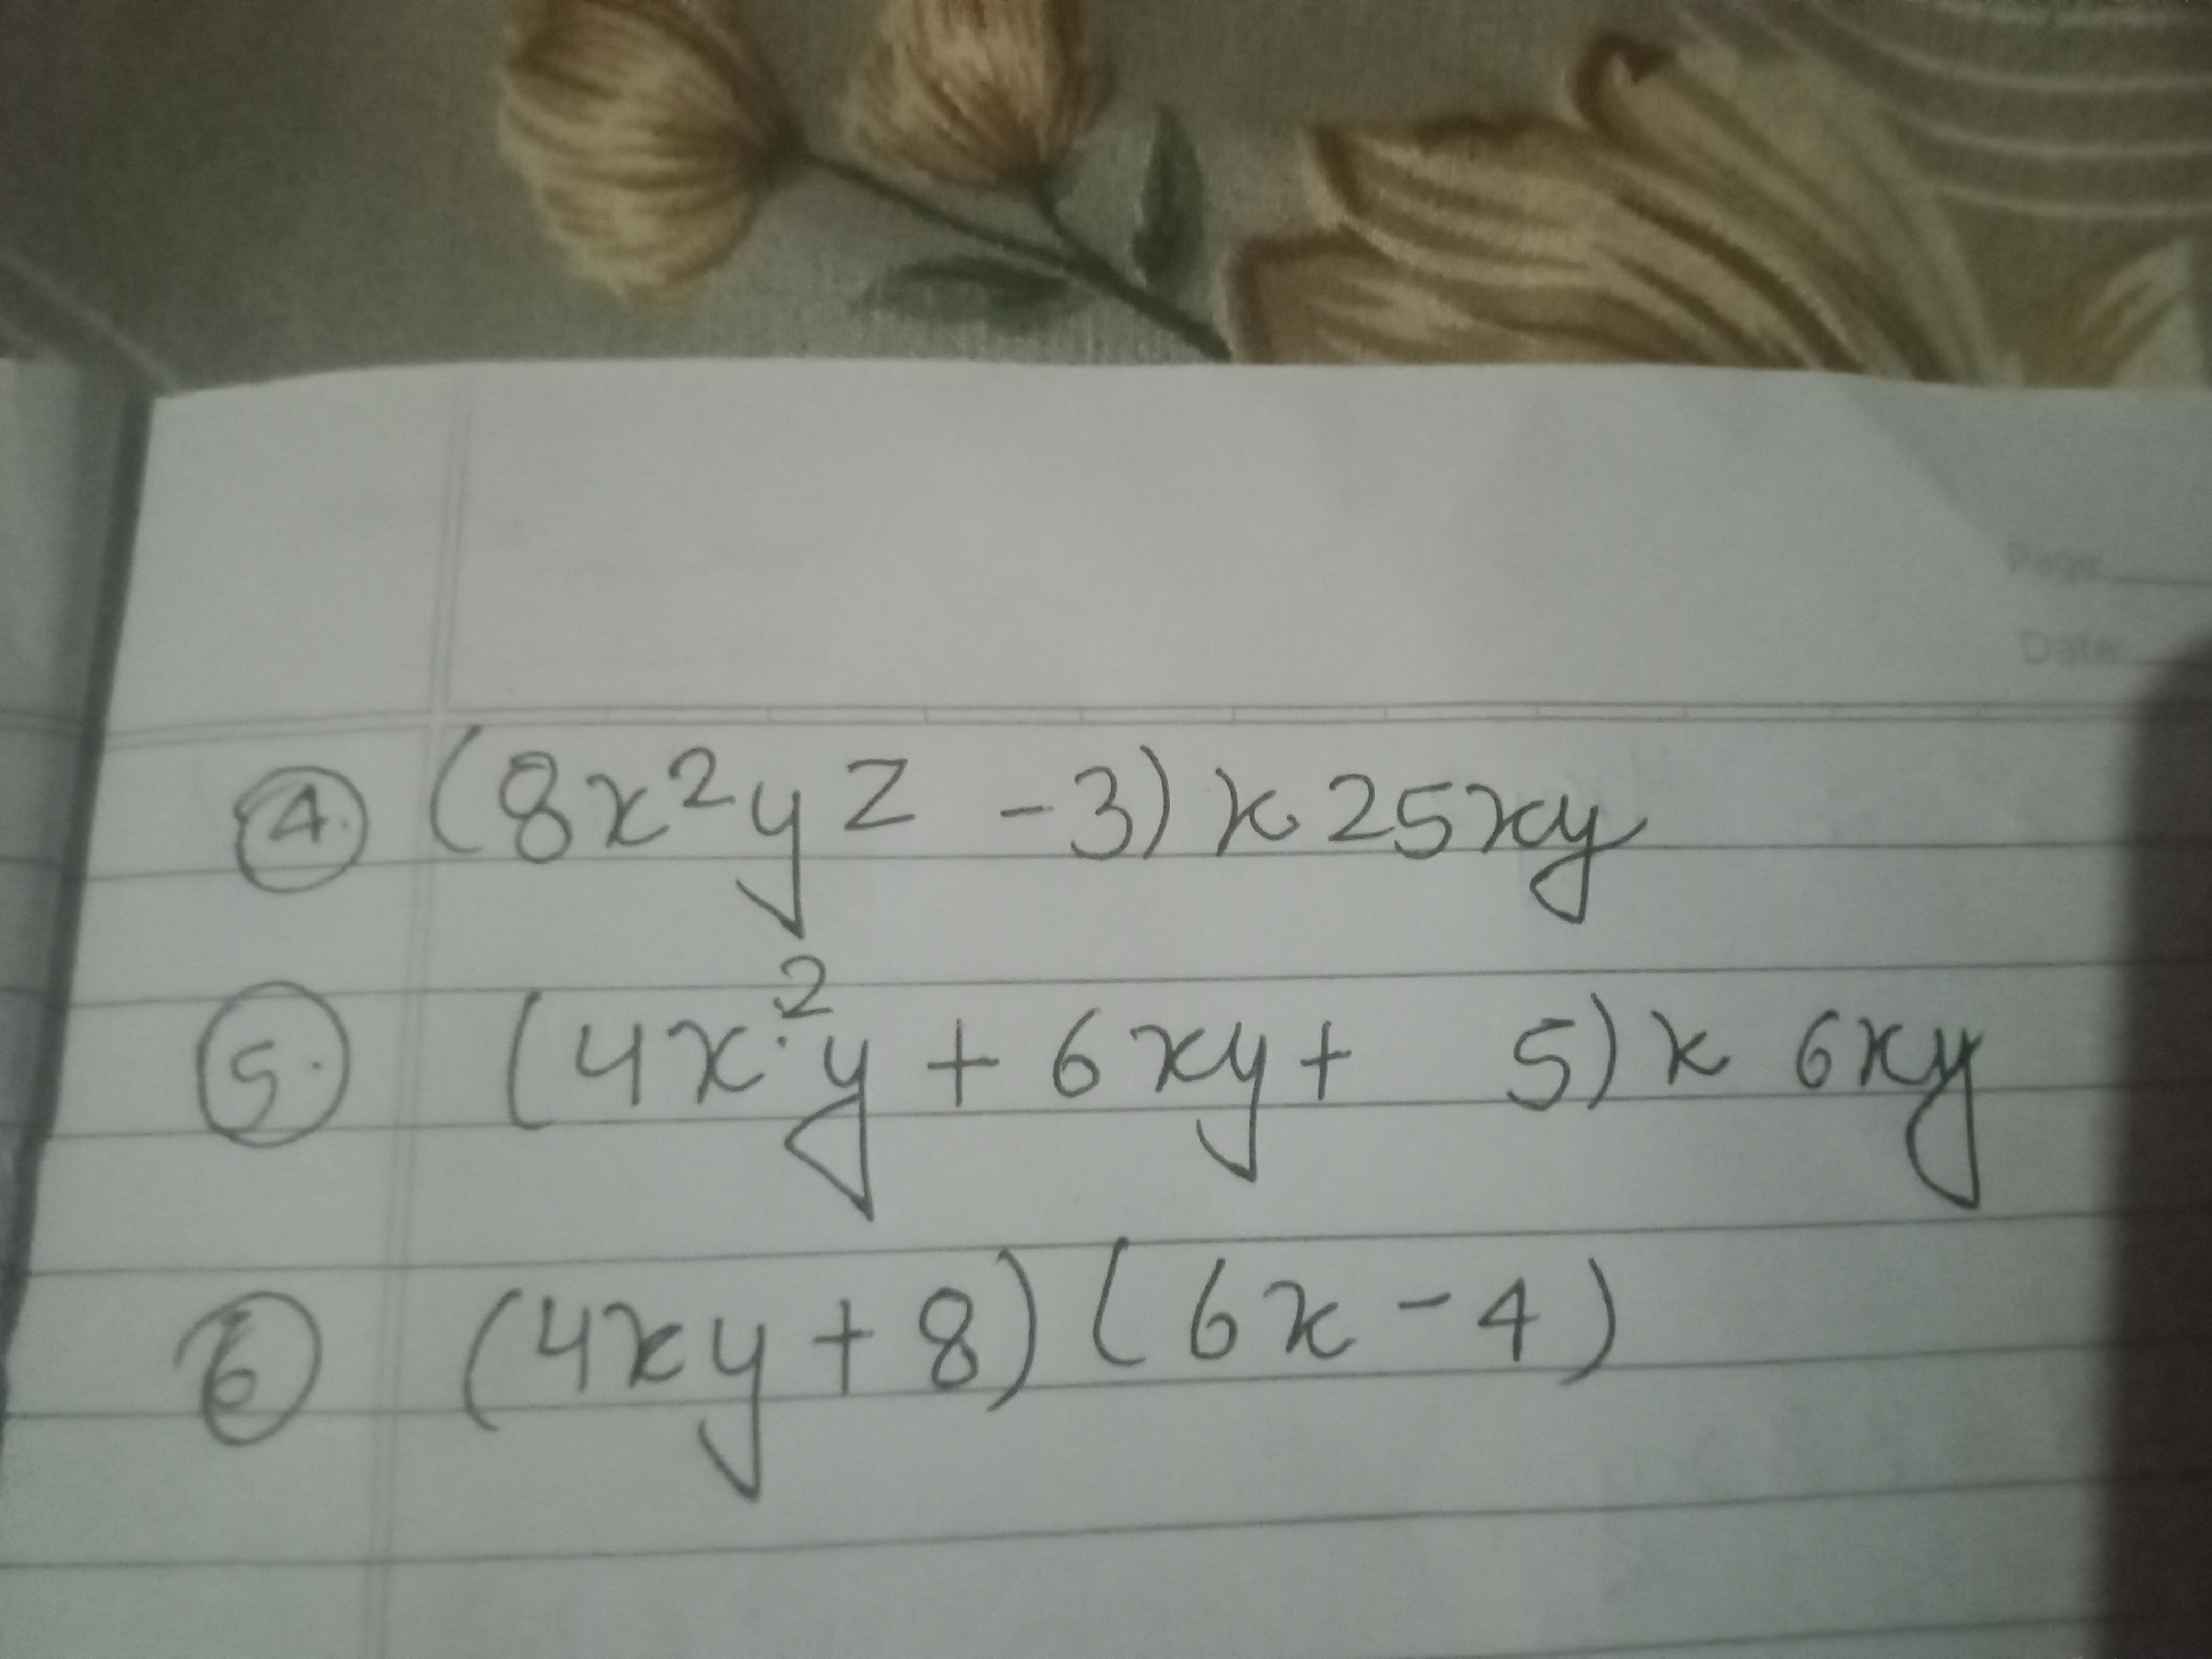 Page:
Date:
4. (8x²yz - 3) x 25xy
5. (4x²y + 6xy + 5) x 6xy
6 (4xy + 8) (6x - 4)